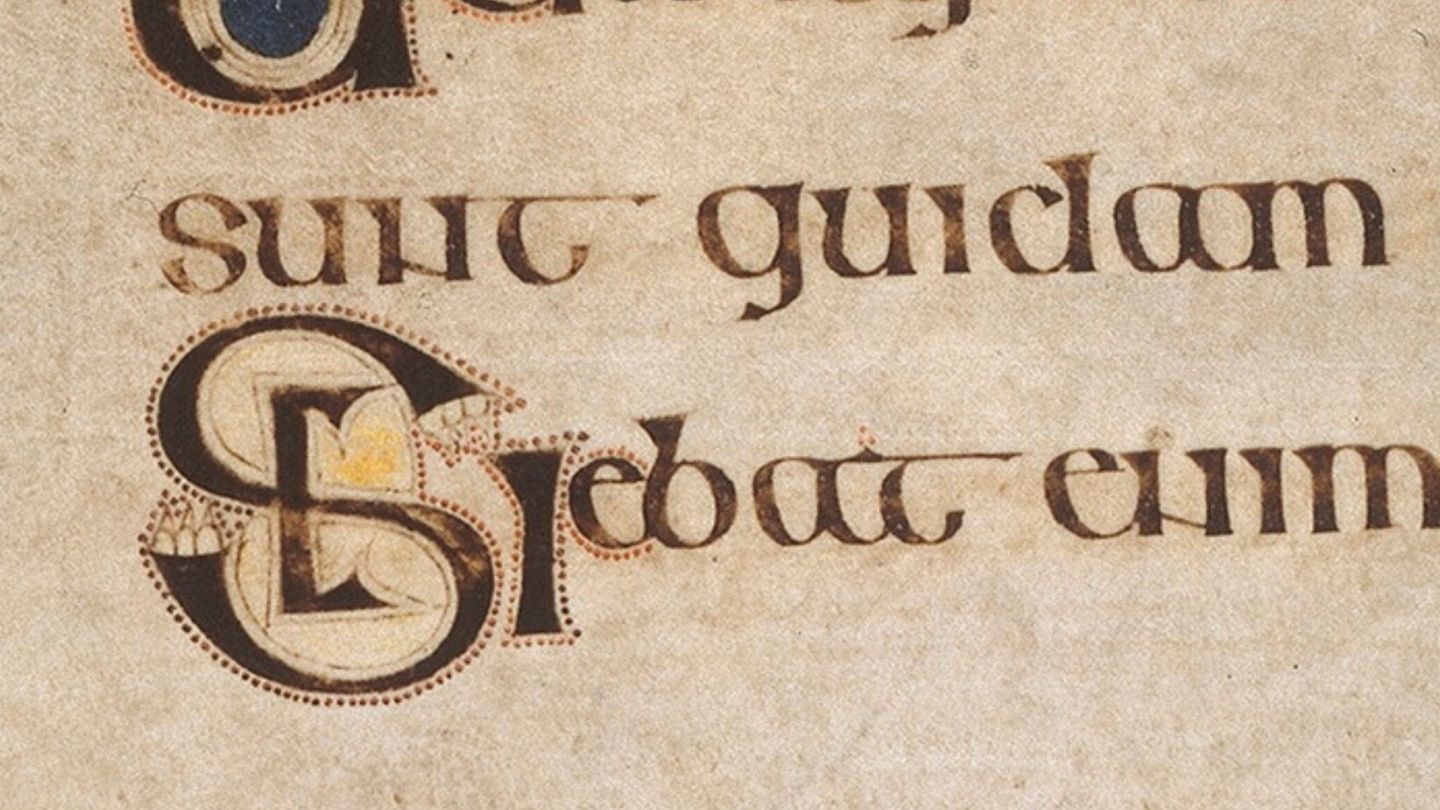 sunt quidam
Sciebat enim